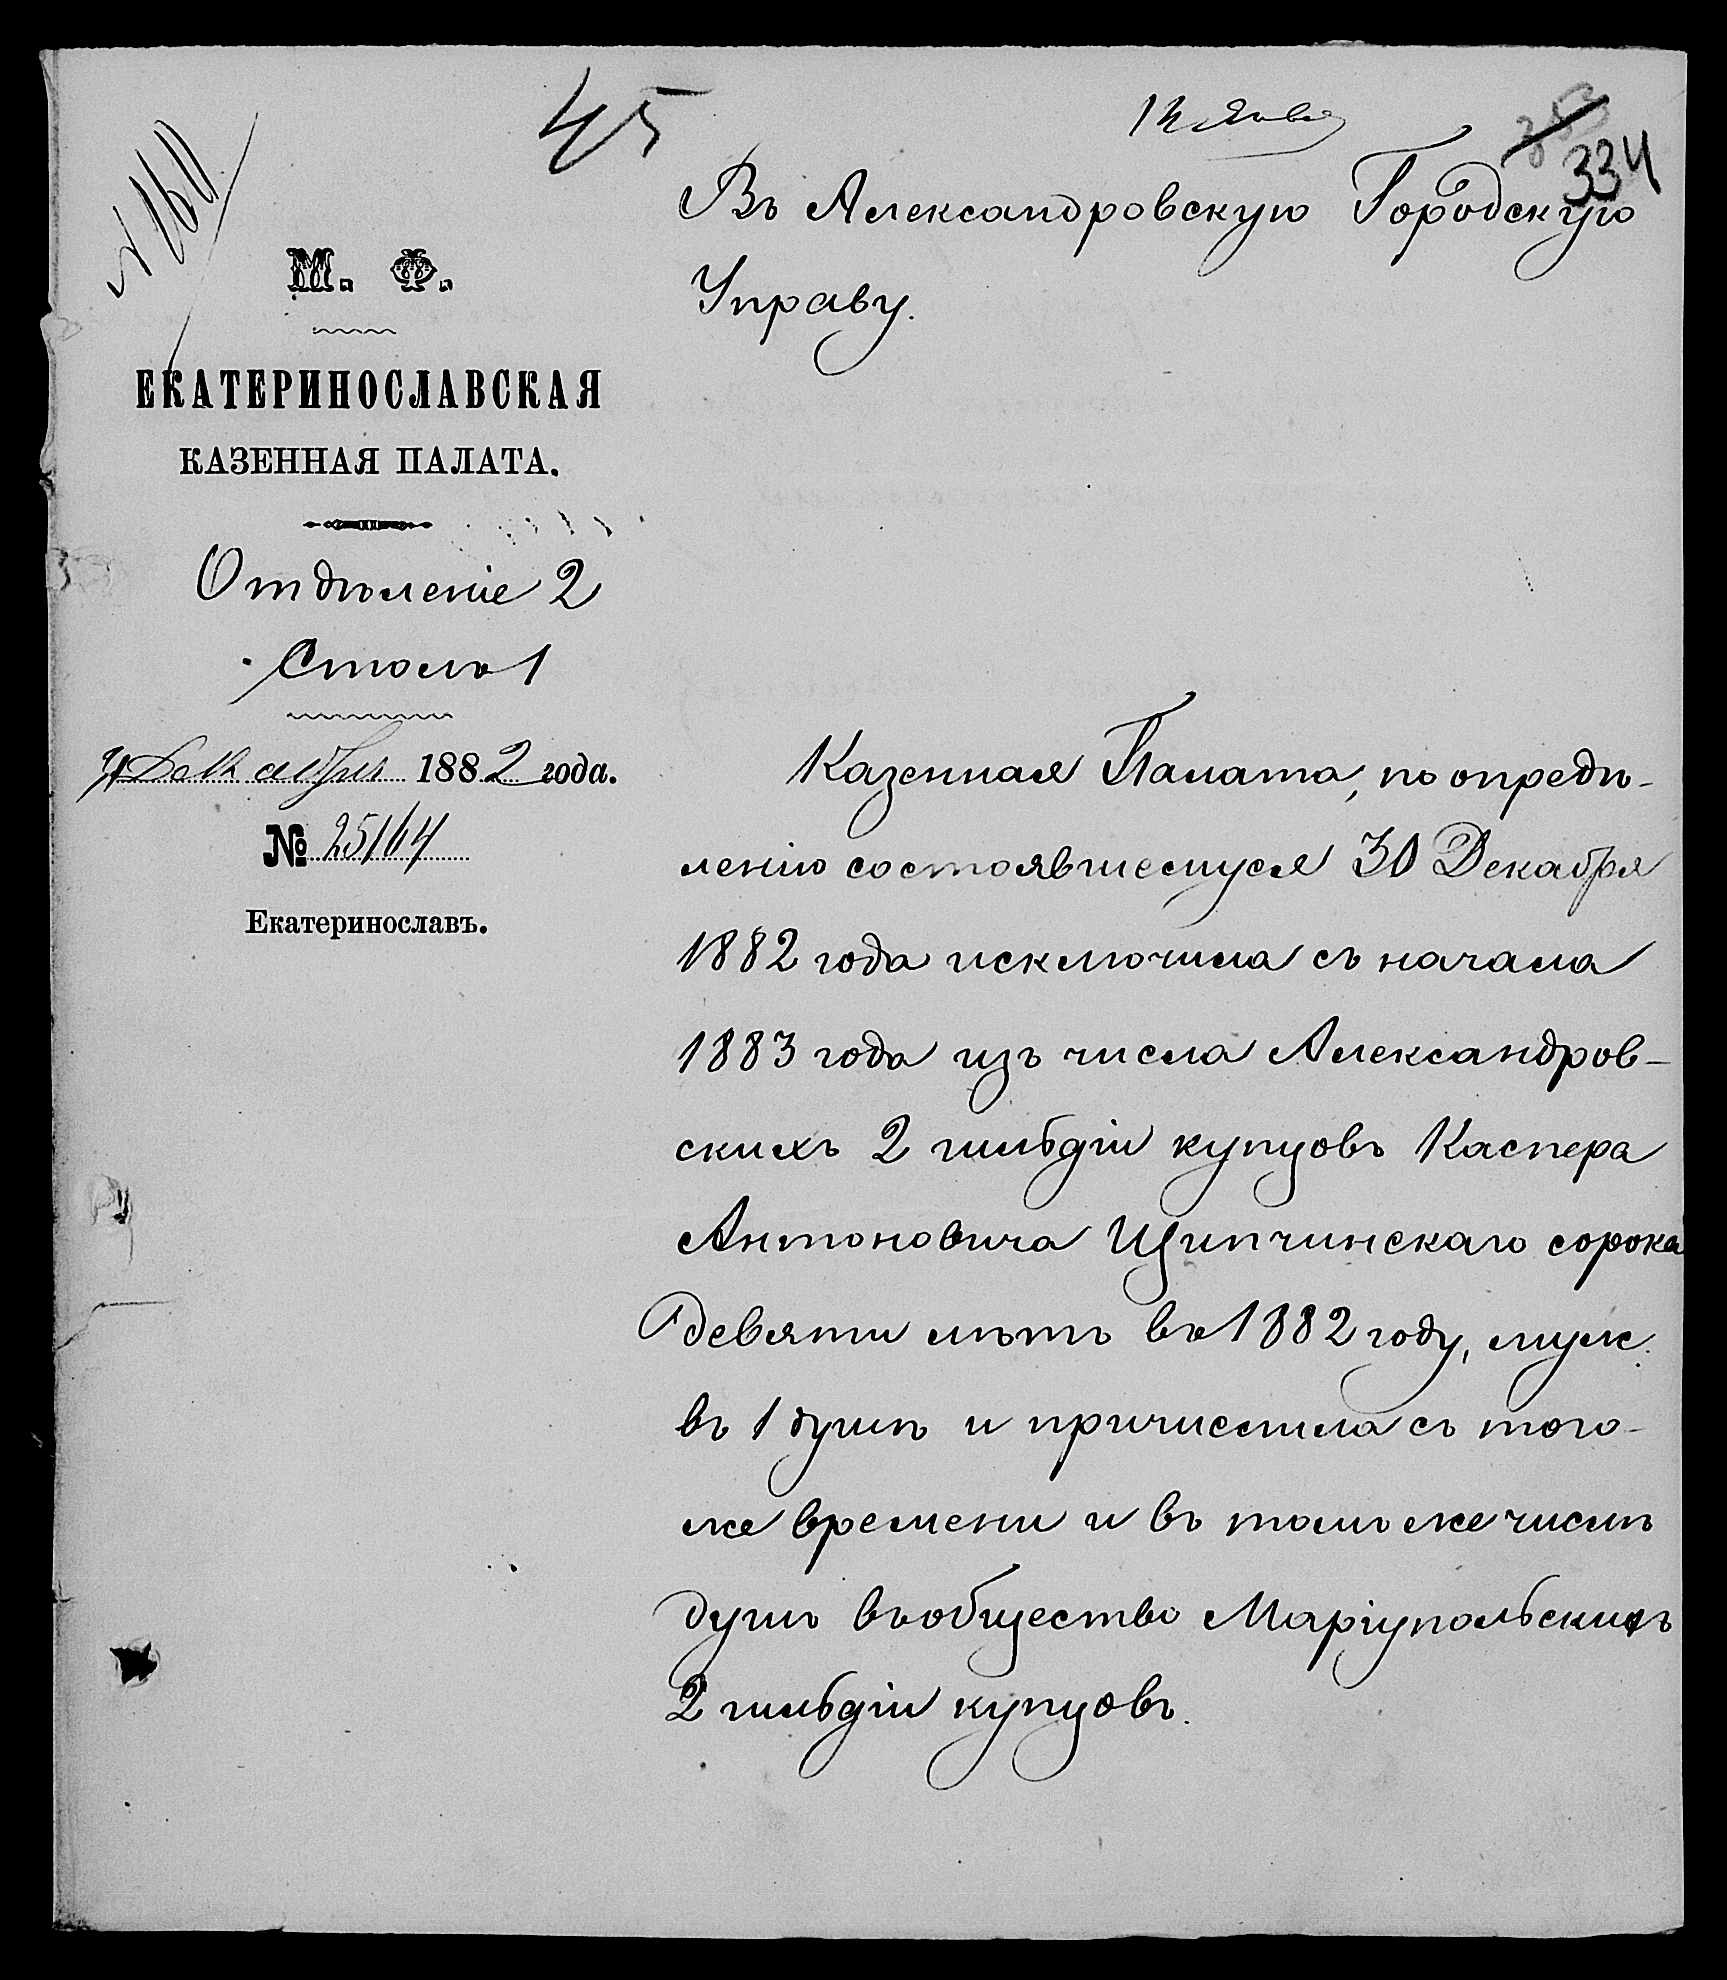 45
334
№ 160
Въ Александровскую Городскую
Управу.
М. Ф.
ЕКАТЕРИНОСЛАВСКАЯ
КАЗЕННАЯ ПАЛАТА.
Отдѣленіе 2
Столъ 1
31 Декабря 1882 года.
№ 25164
Екатеринославъ.
Казенная Палата, по опредѣ-
ленію состоявшемуся 30 Декабря
1882 года исключила съ начала
1883 года изъ числа Александров-
скихъ 2 гильдіи купцовъ Каспера
Антоновича Щипчинскаго сорока
девяти лѣтъ въ 1882 году, муж.
въ 1 душѣ и причислила съ того-
же времени и въ томъ же числѣ
душъ въ общество Маріупольскихъ
2 гильдіи купцовъ.